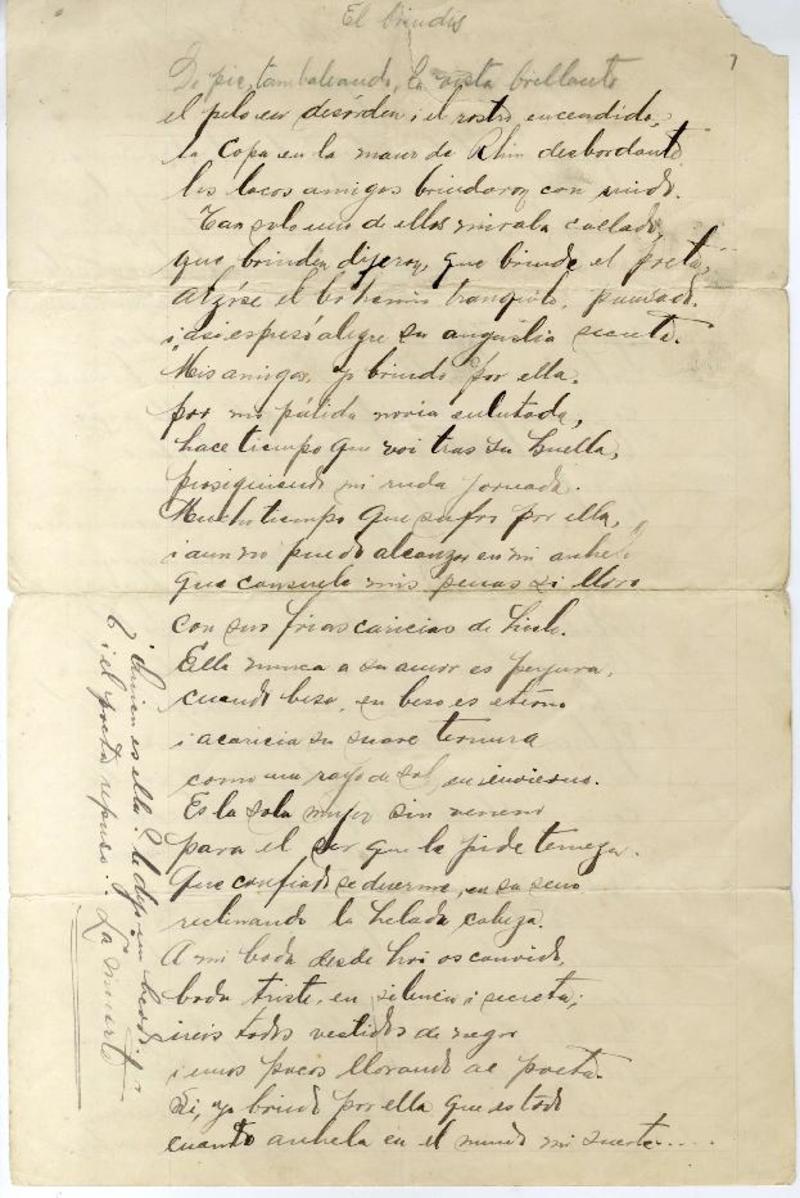 El brindis
7
De pie, tambaleando, la vista brillante
el pelo en desórden i el rostro encendido,
la copa en la mano de Rhin desbordante
los locos amigos brindaron con ruido.
Tan solo uno de ellos miraba callado,
que brinden dijeron, que brinde el poeta,
alzóse el bohemio tranquilo, pausado.
i asi espresó alegre su angustia secreta.
Mis amigos, yo brindo por ella.
por mi pálida novia enlutada,
hace tiempo que voi tras su huella,
prosiguiendo mi ruda jornada.
Mucho tiempo que sufro por ella,
i aun no puedo alcanzar en mi anhelo
que consuele mis penas si lloro
con sus frias caricias de hielo.
Ella nunca a su amor es perjura,
cuando besa, en beso es eterno
i acaricia su suave ternura
como un rayo de sol en invierno.
Es la sola mujer sin veneno
para el ser que la pide terneza.
Que confiado se duerme, en su seno
reclinando la helada cabeza.
A mi boda desde hoi os convido,
boda triste, en silencio i secreta;
ireis todos vestidos de negro
i unos pocos llorando al poeta.
Si, yo brindo por ella que es todo
cuanto anhela en el mundo mi suerte....
¿Quien es ella? le dijo un beodo
i el poeta repuso:.. La muerte